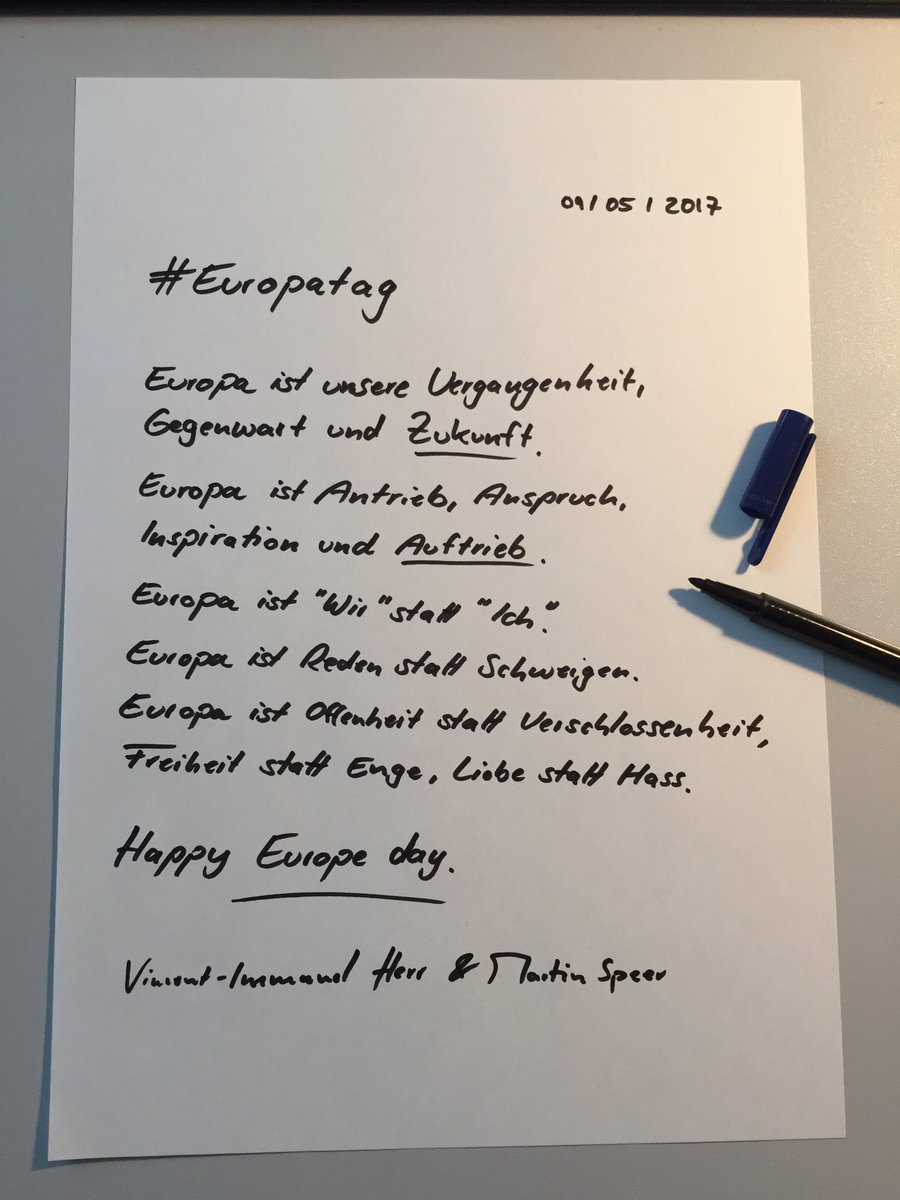 09/05/2017
#Europatag
Europa ist unsere Vergangenheit,
Gegenwart und Zukunft.
Europa ist Antrieb, Anspruch,
Inspiration und Auftrieb.
Europa ist "Wir" statt "Ich".
Europa ist Reden statt Schweigen.
Europa ist Offenheit statt Verschlossenheit,
Freiheit statt Enge, Liebe statt Hass.
Happy Europe day.
Vincent-Immanuel Herr & Martin Speer